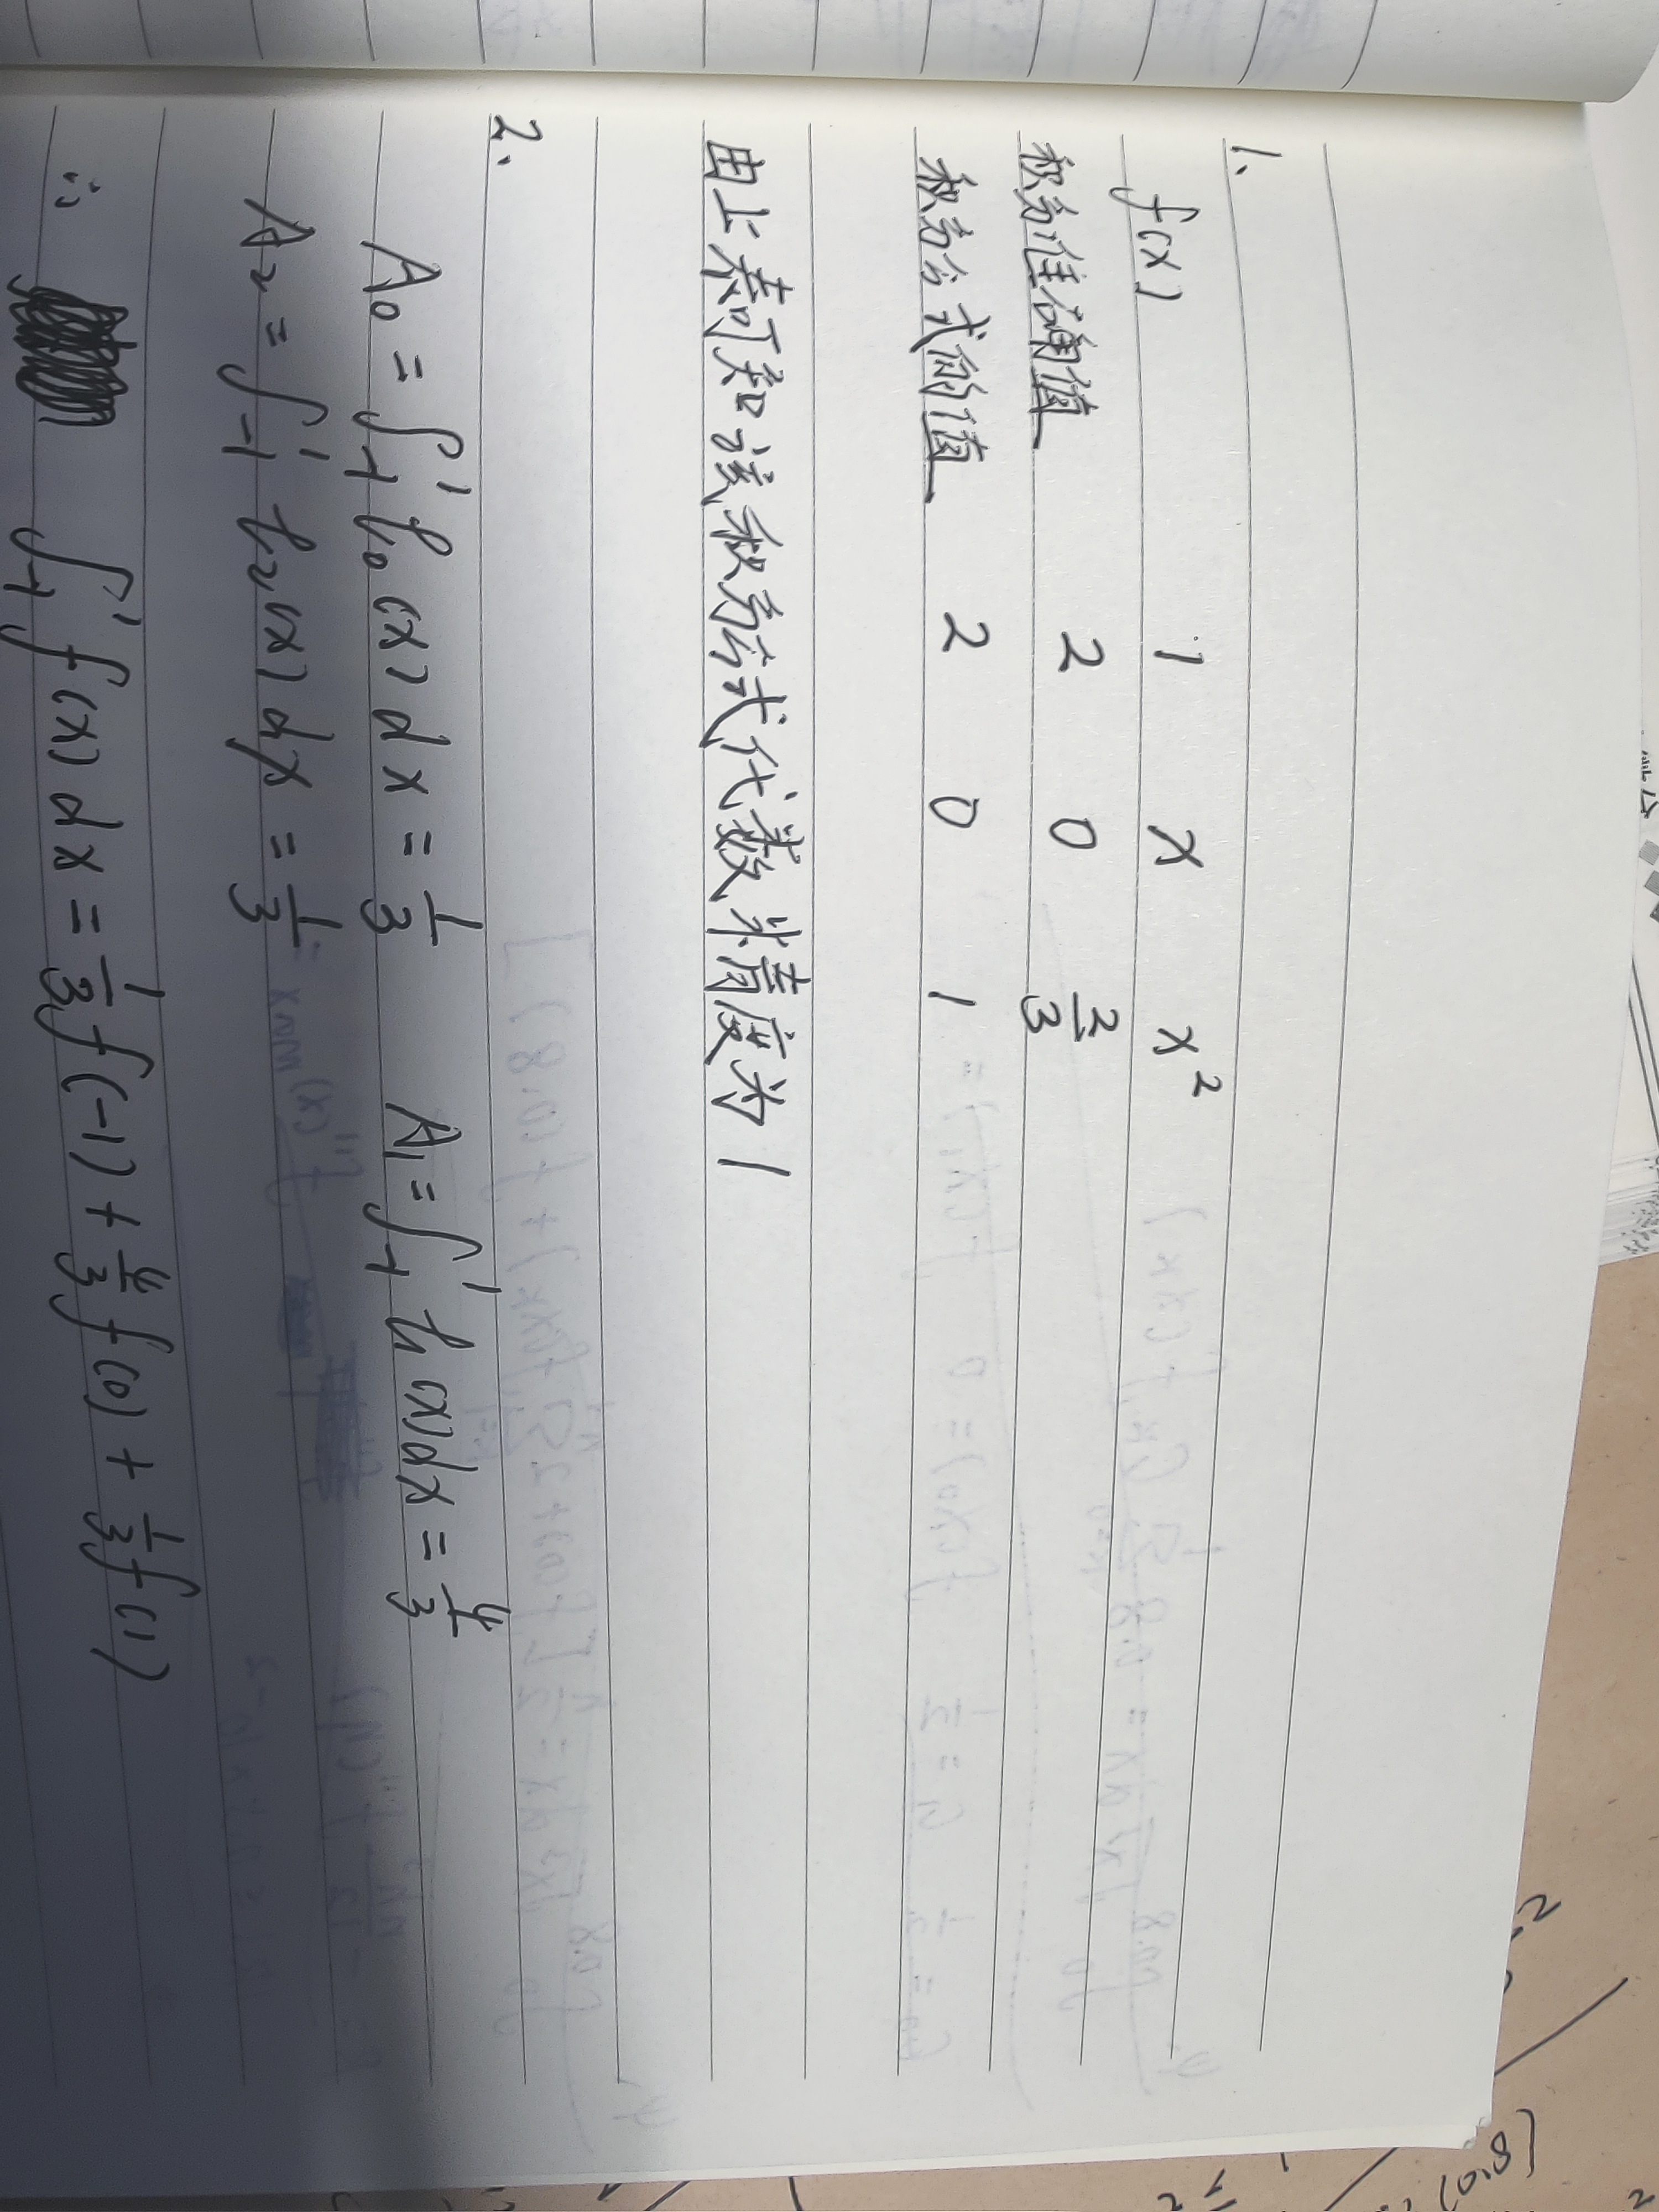 1、
f(x) 1 x x²
积分准确值 2 0 2/3
积分公式的值 2 0 1
由上表可知该积分公式代数精度为1
2、
A₀ = ∫₋₁¹ l₀(x)dx = 1/3 A₁ = ∫₋₁¹ l₁(x)dx = 4/3
A₂ = ∫₋₁¹ l₂(x)dx = 1/3
∴ ∫₋₁¹ f(x)dx = 1/3 f(-1) + 4/3 f(0) + 1/3 f(1)